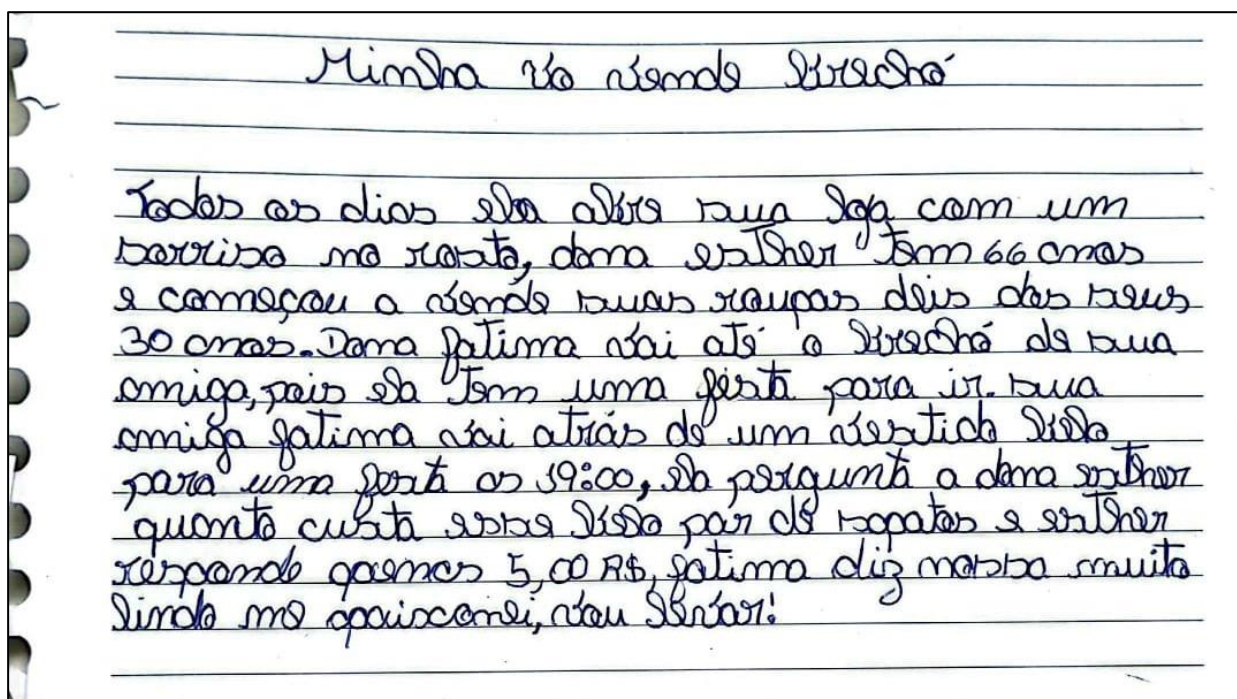 Minha vó vende brechó
Todos os dias ela abre sua loja com um
sorriso no rosto, dona esther tem 66 anos
e começou a vende suas roupas deis dos seus
30 anos. Dona fatima vai até o brechó de sua
amiga, pois ela tem uma festa para ir. sua
amiga fatima vai atrás de um vestido belo
para uma festa as 19:00, ela pergunta a dona esther
quanto custa esse belo par de sapatos e esther
responde apenas 5,00 R$, fatima diz nossa muito
lindo me apaisconei, vou levar!